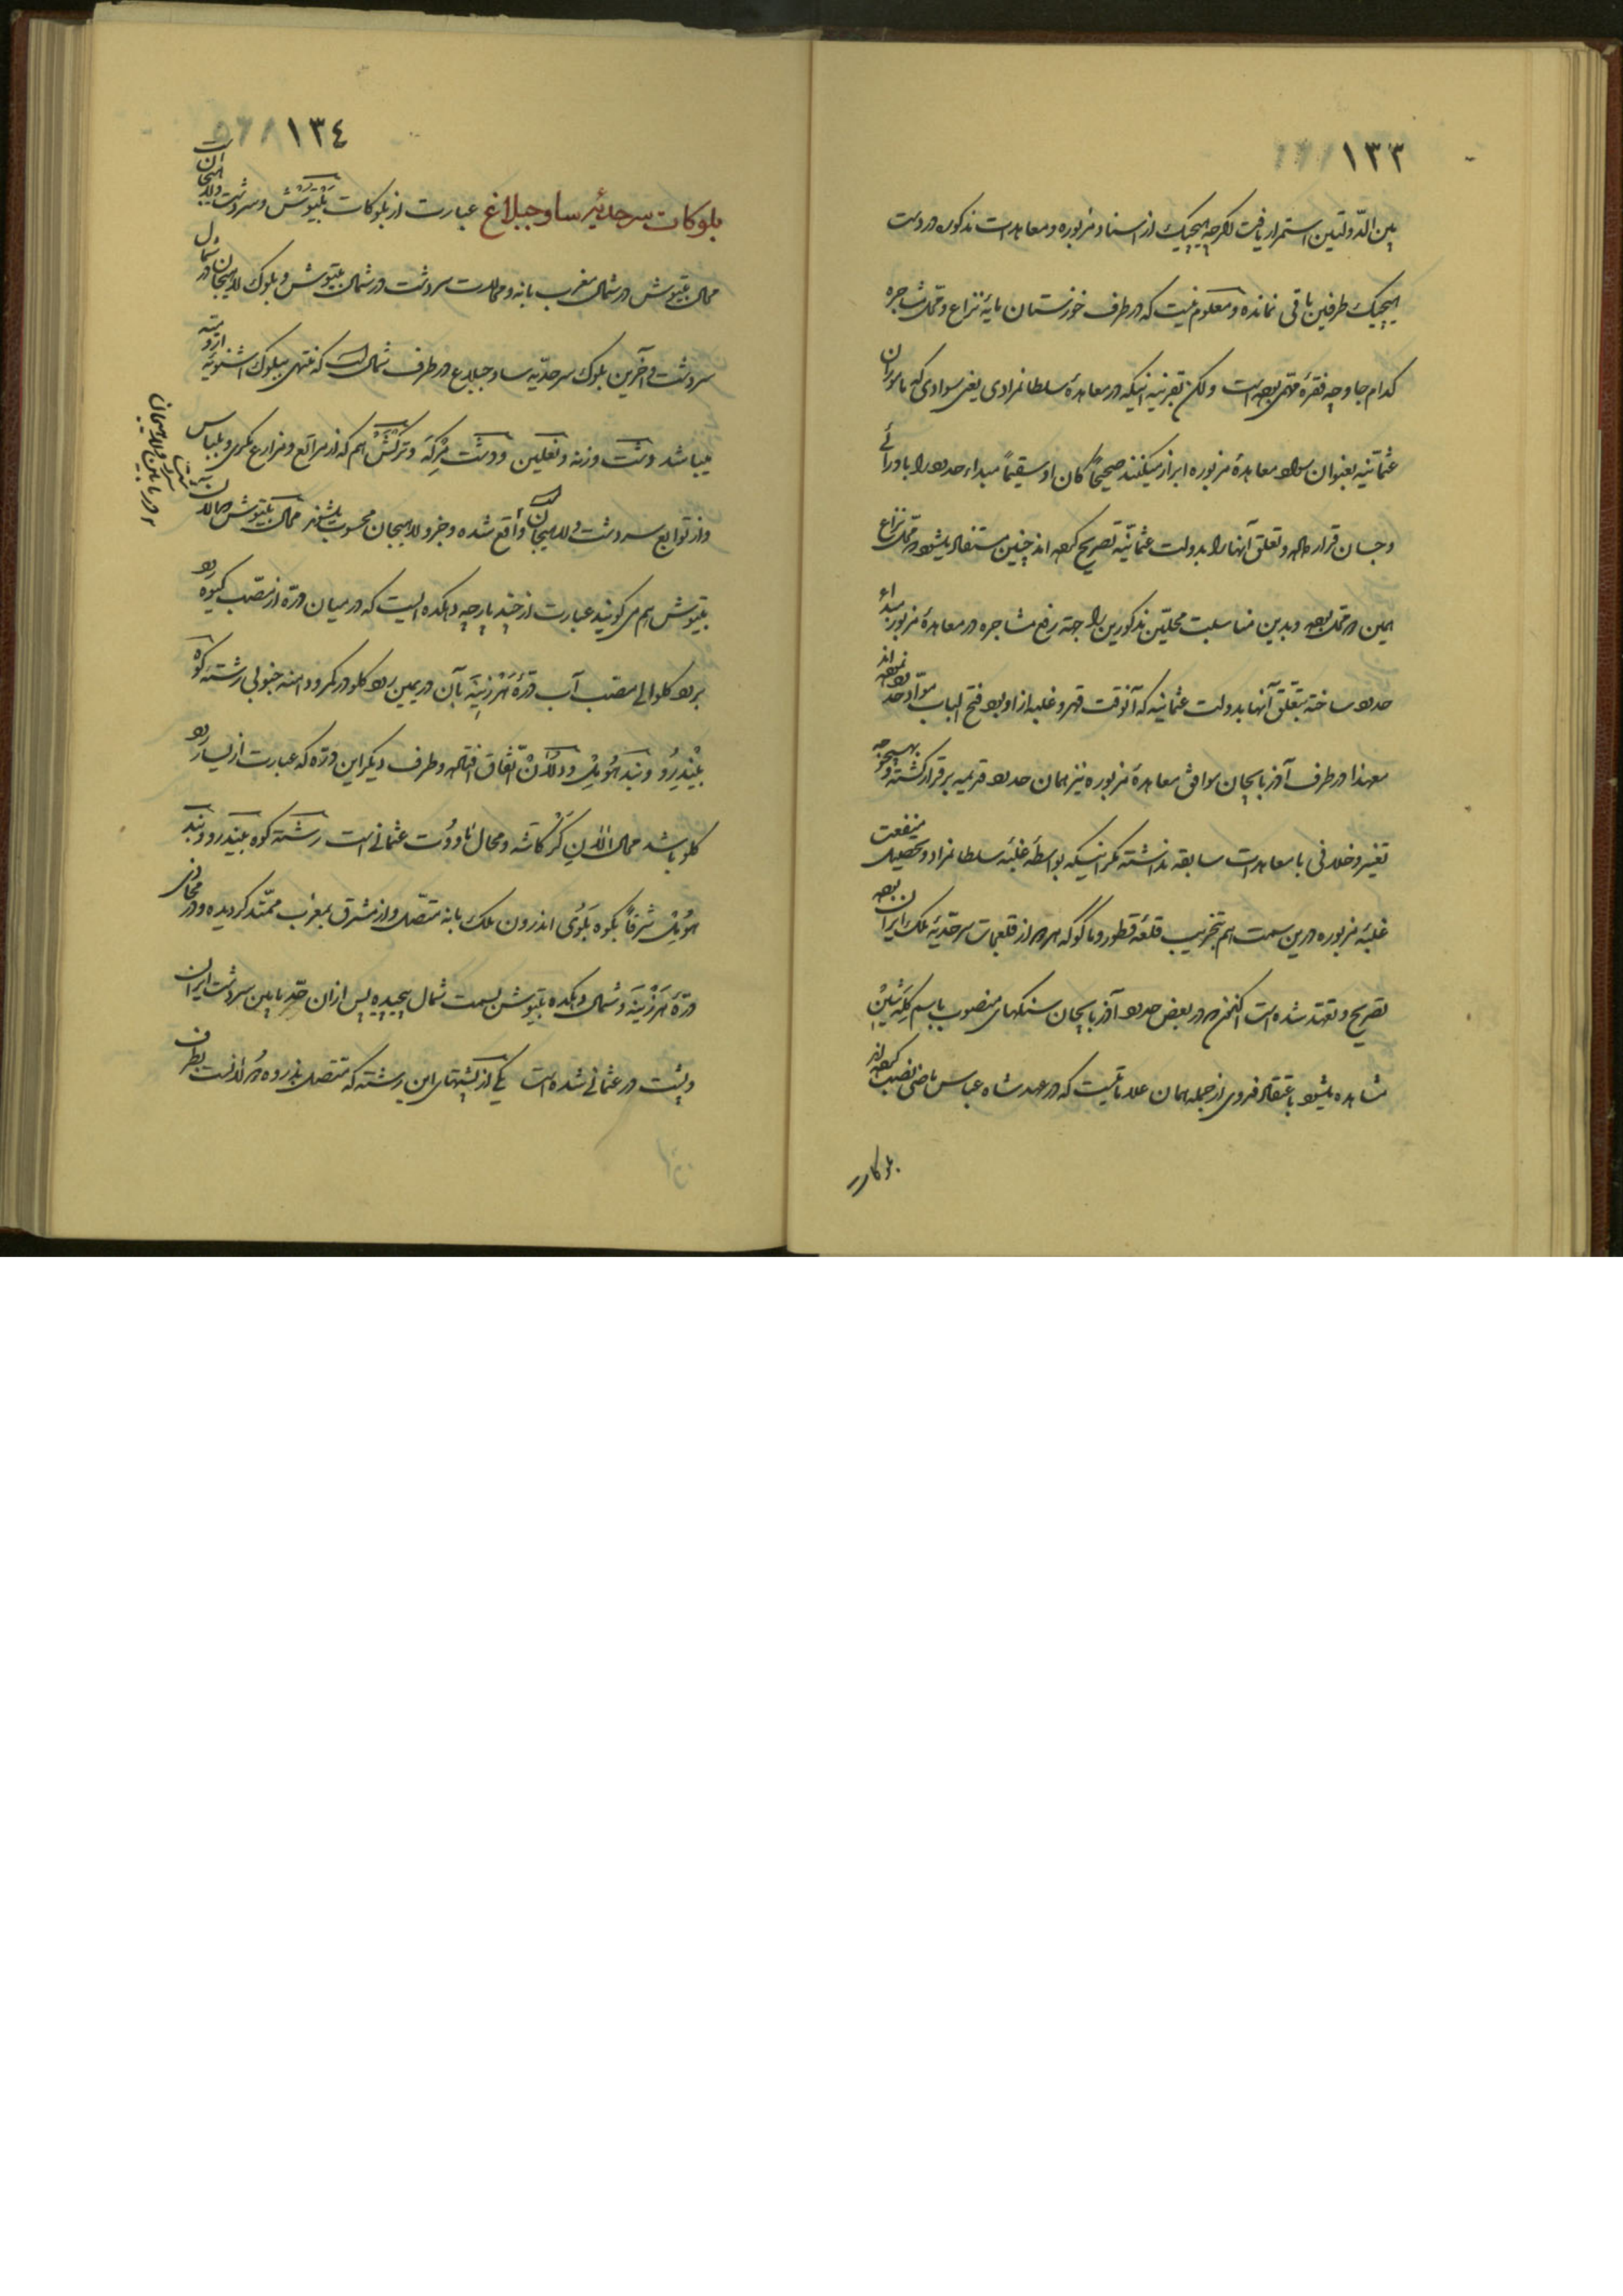 ١٣٣
بین الدّولتین استمرار یافت اگرچه هیچیک از اسناد مزبوره و معاهدات مذکوره در دست
هیچیک طرفین باقی نمانده و معلوم نیست که در طرف خوزستان مایهٔ نزاع و محل مشاجره
کدام جا و چه فقرهٔ مهمی بوده است ولکن بقرینه اینکه در معاهدهٔ سلطانمرادی یعنی سوادی که مأموران
عثمانیه بعنوان سواد معاهدهٔ مزبوره ابراز میکنند صحیحاً کان او سقیماً مبداء حدود را بادرائی
و جسان قرار داده و تعلق آنها را بدولت عثمانیه تصریح کرده اند چنین مستفاد میشود که محل نزاع
همین دو محل بوده و بدین مناسبت محلتین مذکورین را جهة رفع مشاجره در معاهدهٔ مزبوره مبداء
حدود ساخته بتعلق آنها بدولت عثمانیه که آنوقت قهر و غلبه از او بود فتح الباب مواد حدود نموده اند
معهذا در طرف آذربایجان موافق معاهدهٔ مزبوره نیز همان حدود قدیمه برقرار گشته و بهیچوجه
تغییر و خلافی با معاهدات سابقه نداشته مگر اینکه بواسطهٔ غلبهٔ سلطانمراد و تحصیل منفعت
غلبهٔ مزبوره درین سمت هم تخریب قلعهٔ قطور و ماکو که هر دو از قلعجات سرحدیهٔ ملک ایران بوده
تصریح و تعهد شده است اکنون هم در بعض حدود آذربایجان سنگهای منصوب باسم کله شین
مشاهده میشود باعتقاد فدوی از جمله همان علاماتیست که در عهد شاه عباس ماضی نصب کرده اند
بلوکات
١٣٤
بلوکات سرحدیهٔ ساوجبلاغ عبارت از بلوکات بیتوش و سردشت و لاهیجان است
محال بیتوش در شمال مغرب بانه و محالات سردشت در شمال بیتوش و بلوک لاهیجان در شمال
سردشت و آخرین بلوک سرحدیه ساوجبلاغ در طرف شمال است که منتهی ببلوک اشنویه ارومیه
میباشد دشت وزنه و نعلین و دشت مرگه و ترکش هم که از مراتع و مزارع مکری و بلباس
و از توابع سردشت و لاهیجان است و در مابین سردشت و لاهیجان واقع شده و جزو لاهیجان محسوب میشوند محال بیتوش که آلان
بیتوش هم می گویند عبارت از چند پارچه دهکده ایست که در میان درّه از مصب گیوه رود
برود کلو الی مصب آب درّهٔ هرزینه بآن در یمین رود کلو در کمر و دامنه جنوبی رشته کوه
بلیندرو و بند هومل و دولان اتفاق افتاده و طرف دیگر این درّه که عبارت از یسار رود
کلو باشد محال الان گرگاشه و محال ناودشت عثمانی است رشته کوه بلیندرو و بند
هومل شرقاً بکوه بلوی اندرون ملک بانه متصل و از مشرق بمغرب ممتد گردیده و در محاذی
درّهٔ هرزینه و شمال دهکده بیتوش بسمت شمال پیچیده پس از ان حد مابین سردشت ایران
و پشت در عثمانی شده است یکی از پشتهای این رشته که متصل بذروه دولانست بطرف